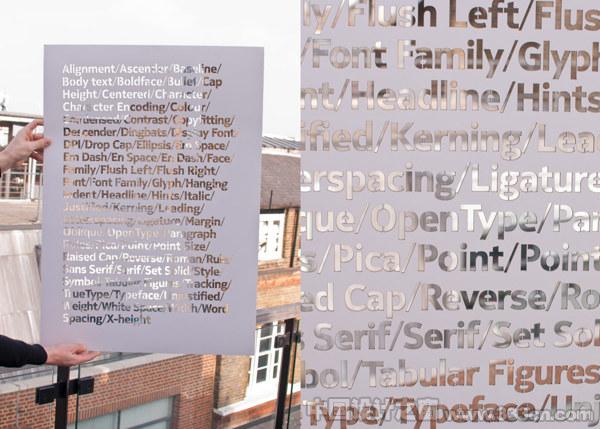 Alignment/Ascender/Baseline/
Body text/Boldface/Bullet/Cap
Height/Centered/Character/
Character Encoding/Colour/
Condensed/Contrast/Copyfitting/
Descender/Dingbats/Display Font/
DPI/Drop Cap/Ellipsis/Em Space/
Em Dash/En Space/En Dash/Face/
Family/Flush Left/Flush Right/
Font/Font Family/Glyph/Hanging
Indent/Headline/Hints/Italic/
Justified/Kerning/Leading/
Letterspacing/Ligature/Margin/
Oblique/OpenType/Paragraph
Rules/Pica/Point/Point Size/
Raised Cap/Reverse/Roman/Rule/
Sans Serif/Serif/Set Solid/Style/
Symbol/Tabular Figures/Tracking/
TrueType/Typeface/Unjustified/
Weight/White Space/Width/Word
Spacing/X-height
ly/Flush Left/Flus
/Font Family/Glyph
nt/Headline/Hints
ified/Kerning/Lea
erspacing/Ligature
que/OpenType/Par
s/Pica/Point/Point
ed Cap/Reverse/Ro
Serif/Serif/Set Sol
bol/Tabular Figures
Type/Typeface/Unj